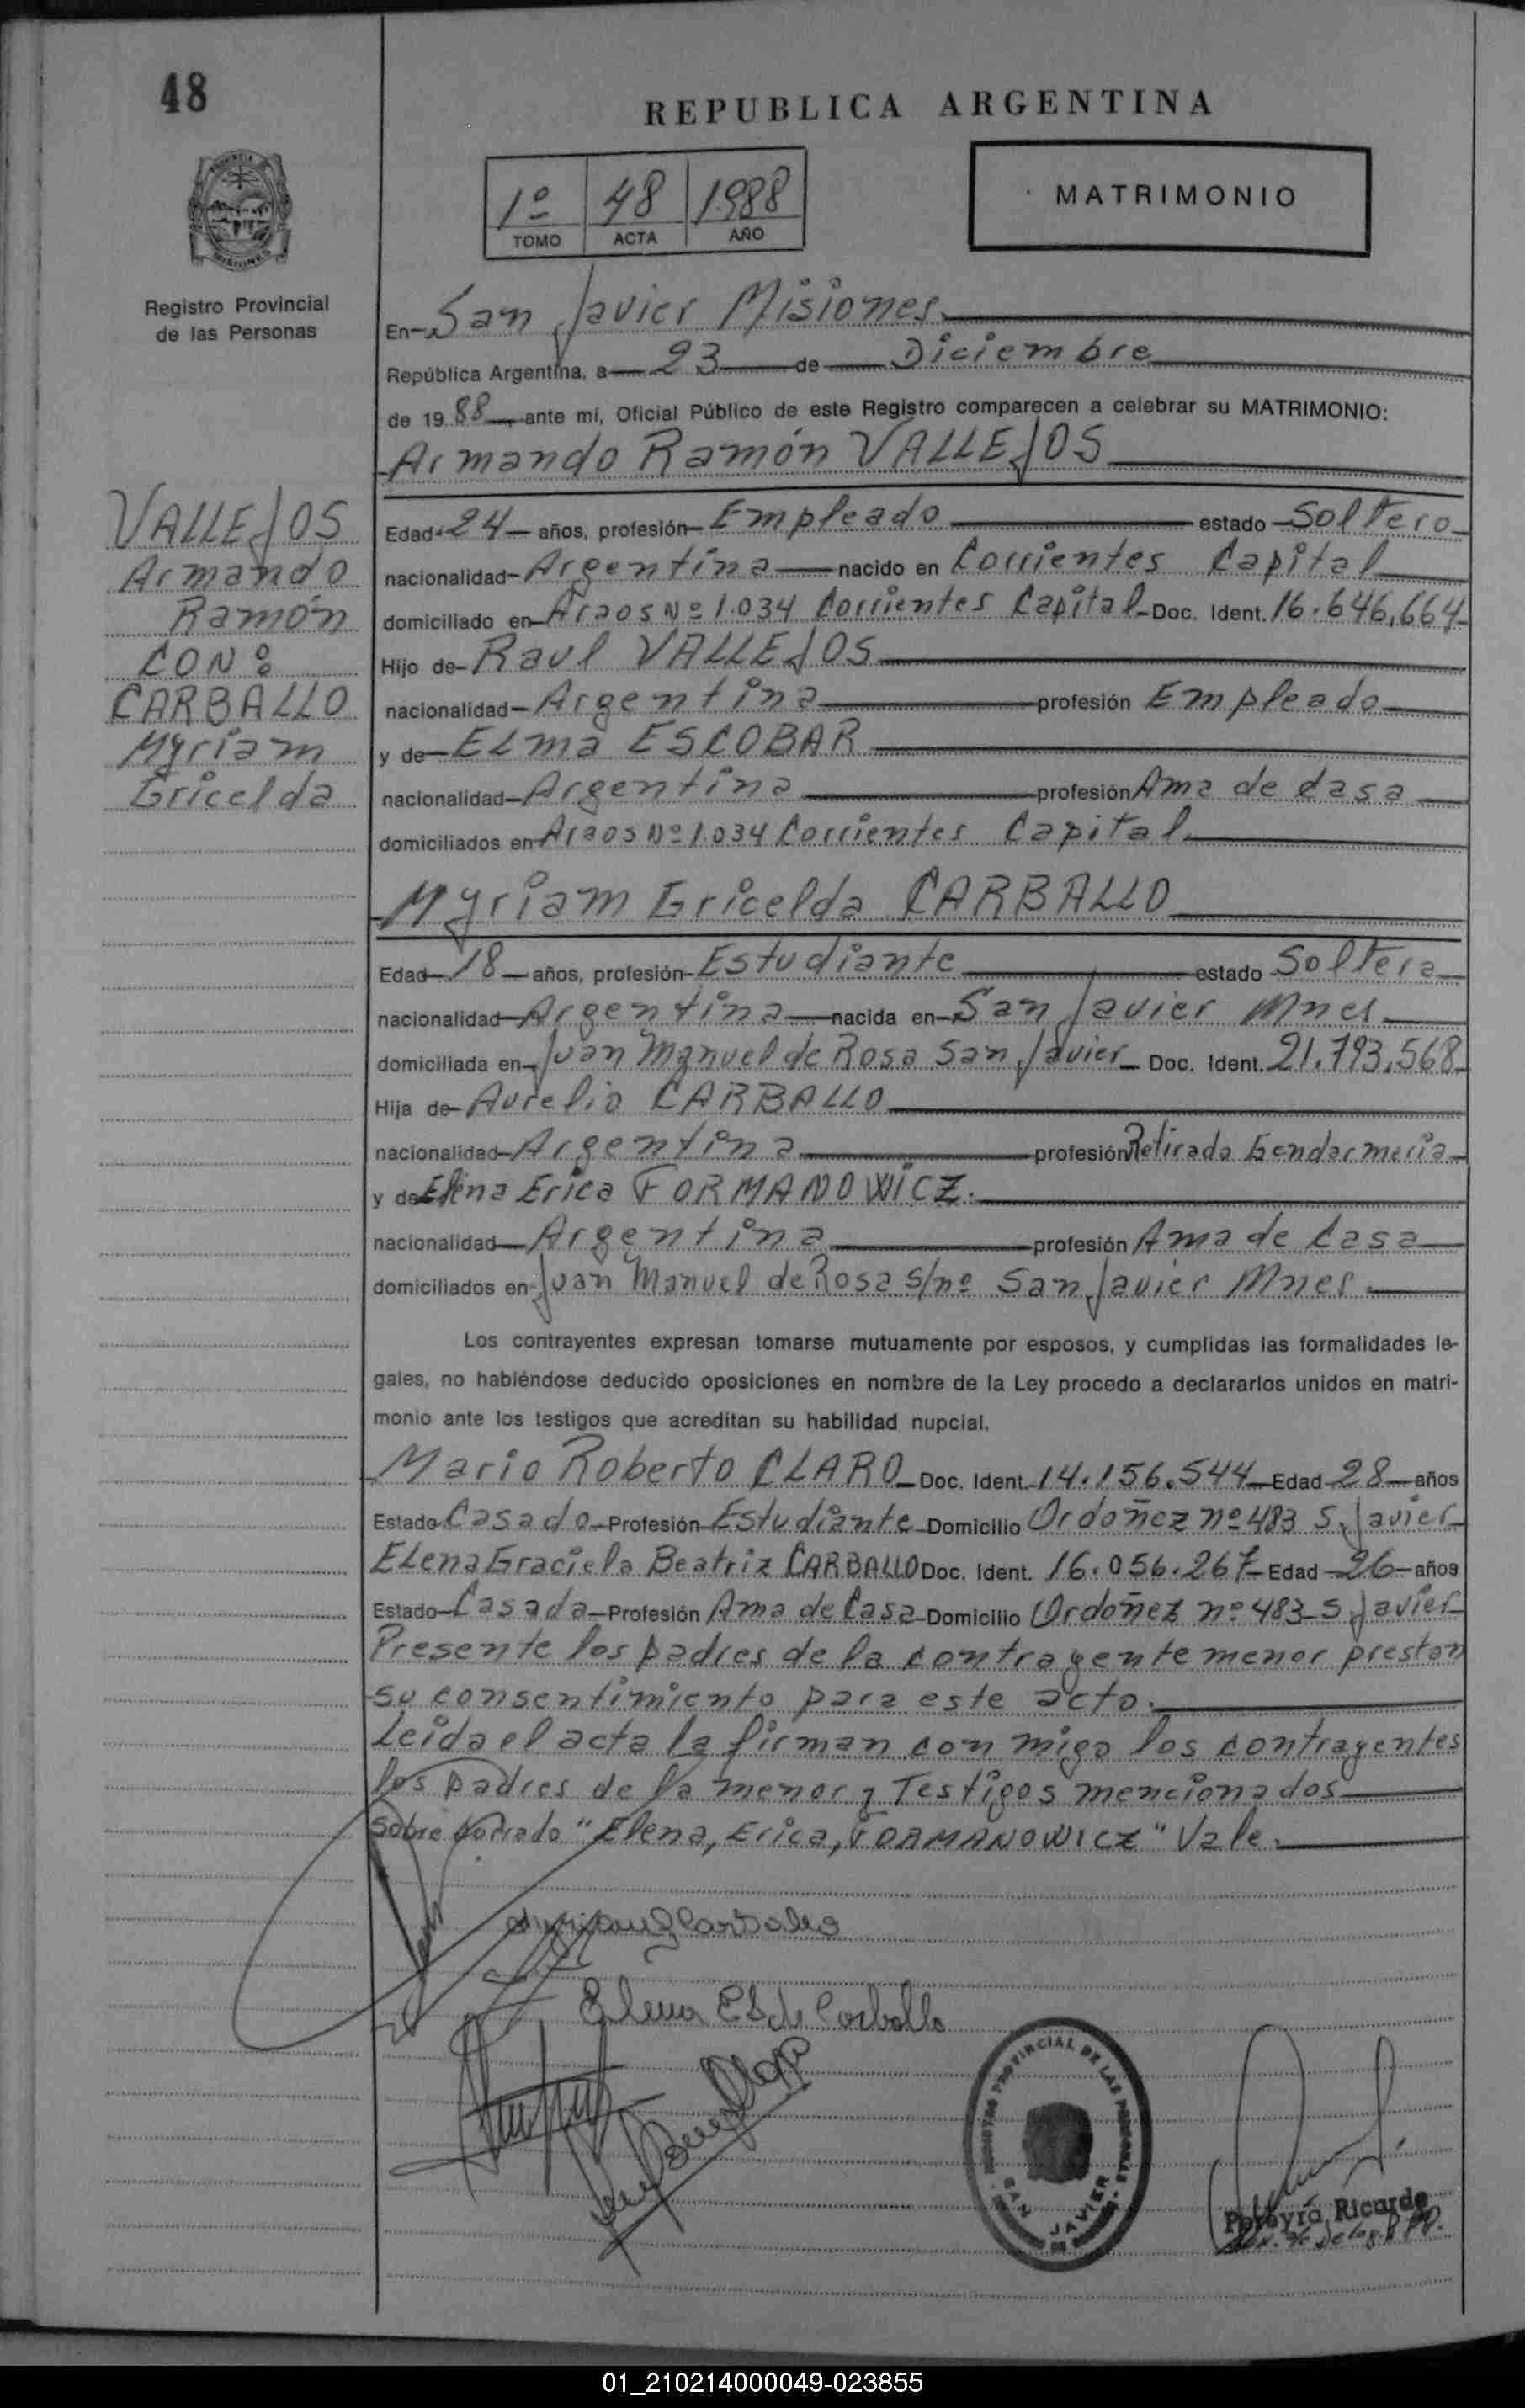 48
REPUBLICA ARGENTINA
1º 48 1988
TOMO ACTA AÑO
MATRIMONIO
PROVINCIA DE
MISIONES
Registro Provincial
de las Personas
En San Javier Misiones
República Argentina, a 23 de Diciembre
de 1988 ante mí, Oficial Público de este Registro comparecen a celebrar su MATRIMONIO:
Armando Ramón VALLEJOS
VALLEJOS
Armando
Ramón
CON:
CARBALLO
Myriam
Gricelda
Edad 24 años, profesión Empleado estado Soltero
nacionalidad Argentina nacido en Corrientes Capital
domiciliado en Araos Nº 1.034 Corrientes Capital Doc. Ident. 16.646.664
Hijo de Raul VALLEJOS
nacionalidad Argentina profesión Empleado
y de ELma ESCOBAR
nacionalidad Argentina profesión Ama de Casa
domiciliados en Araos Nº 1.034 Corrientes Capital
Myriam Gricelda CARBALLO
Edad 18 años, profesión Estudiante estado Soltera
nacionalidad Argentina nacida en San Javier Mnes
domiciliada en Juan Manuel de Rosa San Javier Doc. Ident. 21.793.568
Hija de Aurelio CARBALLO
nacionalidad Argentina profesión Retirado Gendarmeria
y de Elena Erica FORMANOWICZ.
nacionalidad Argentina profesión Ama de Casa
domiciliados en Juan Manuel de Rosa s/nº San Javier Mnes
Los contrayentes expresan tomarse mutuamente por esposos, y cumplidas las formalidades le-
gales, no habiéndose deducido oposiciones en nombre de la Ley procedo a declararlos unidos en matri-
monio ante los testigos que acreditan su habilidad nupcial.
Mario Roberto CLARO Doc. Ident. 14.156.544 Edad 28 años
Estado Casado Profesión Estudiante Domicilio Ordoñez nº 483 S. Javier
ELena Graciela Beatriz CARBALLO Doc. Ident. 16.056.267 Edad 26 años
Estado Casada Profesión Ama de Casa Domicilio Ordoñez nº 483 S Javier
Presente los padres de la contrayente menor prestan
su consentimiento para este acto.
Leida el acta la firman con migo los contrayentes
los padres de la menor y Testigos mencionados
Sobre borrado "Elena, Erica, FORMANOWICZ" Vale.
Elena E. F. de Carballo
REGISTRO PROVINCIAL DE LAS PERSONAS
SAN JAVIER
Pereyra Ricardo
01_210214000049-023855